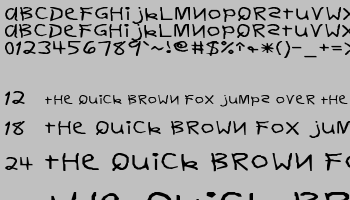 aBCDeFGHijkLMNopQRstuVWX
aBCDeFGHijkLMNopQRstuVWX
0123456789`~!@#$%^&*()-_+=
12 tHe QuiCk BROWN FOX juMps oVeR tHe
18 tHe QuiCk BROWN FOX juM
24 tHe QuiCk BROWN FO